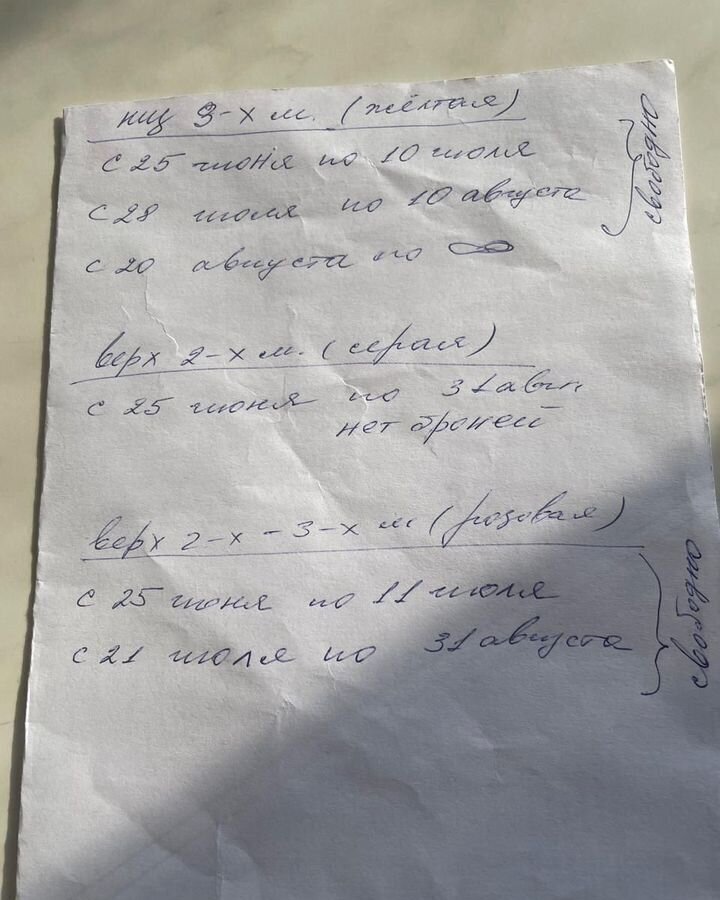 низ 3-х м. (жёлтая)
с 25 июня по 10 июля
с 28 июля по 10 августа
с 20 августа по ∞
свободно
верх 2-х м. (серая)
с 25 июня по 31 авг
нет броней
верх 2-х-3-х м (розовая)
с 25 июня по 11 июля
с 21 июля по 31 августа
свободно